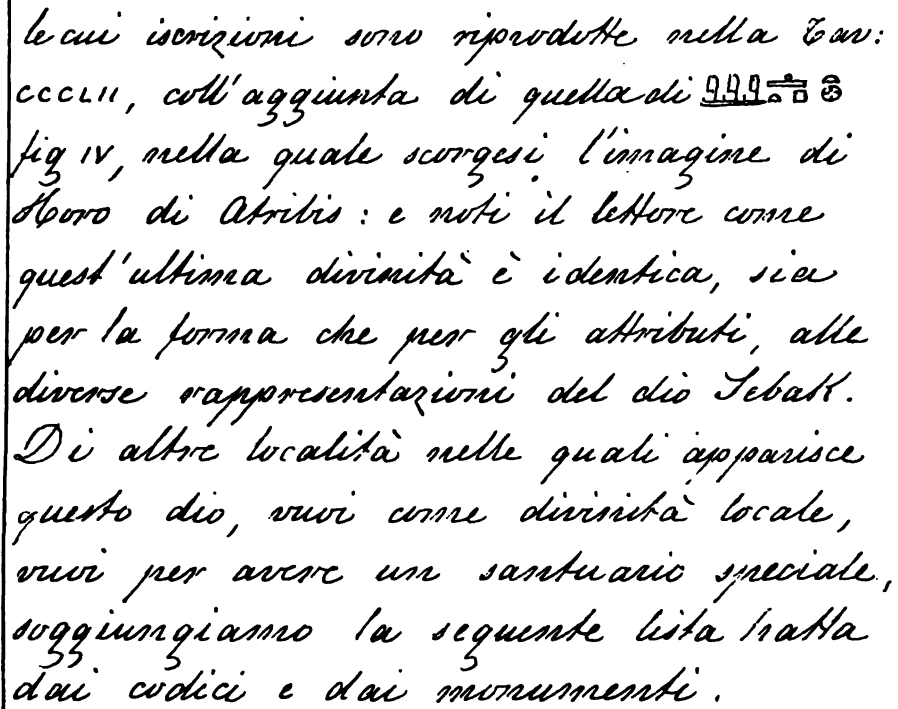 le cui iscrizioni sono riprodotte nella Tav:
CCCLII, coll'aggiunta di quella di
fig IV, nella quale scorgesi l'imagine di
Horo di Atribis: e noti il lettore come
quest'ultima divinità è identica, sia
per la forma che per gli attributi, alle
diverse rappresentazioni del dio Sebak.
Di altre località nelle quali apparisce
questo dio, vuoi come divinità locale,
vuoi per avere un santuario speciale,
soggiungiamo la seguente lista tratta
dai codici e dai monumenti.